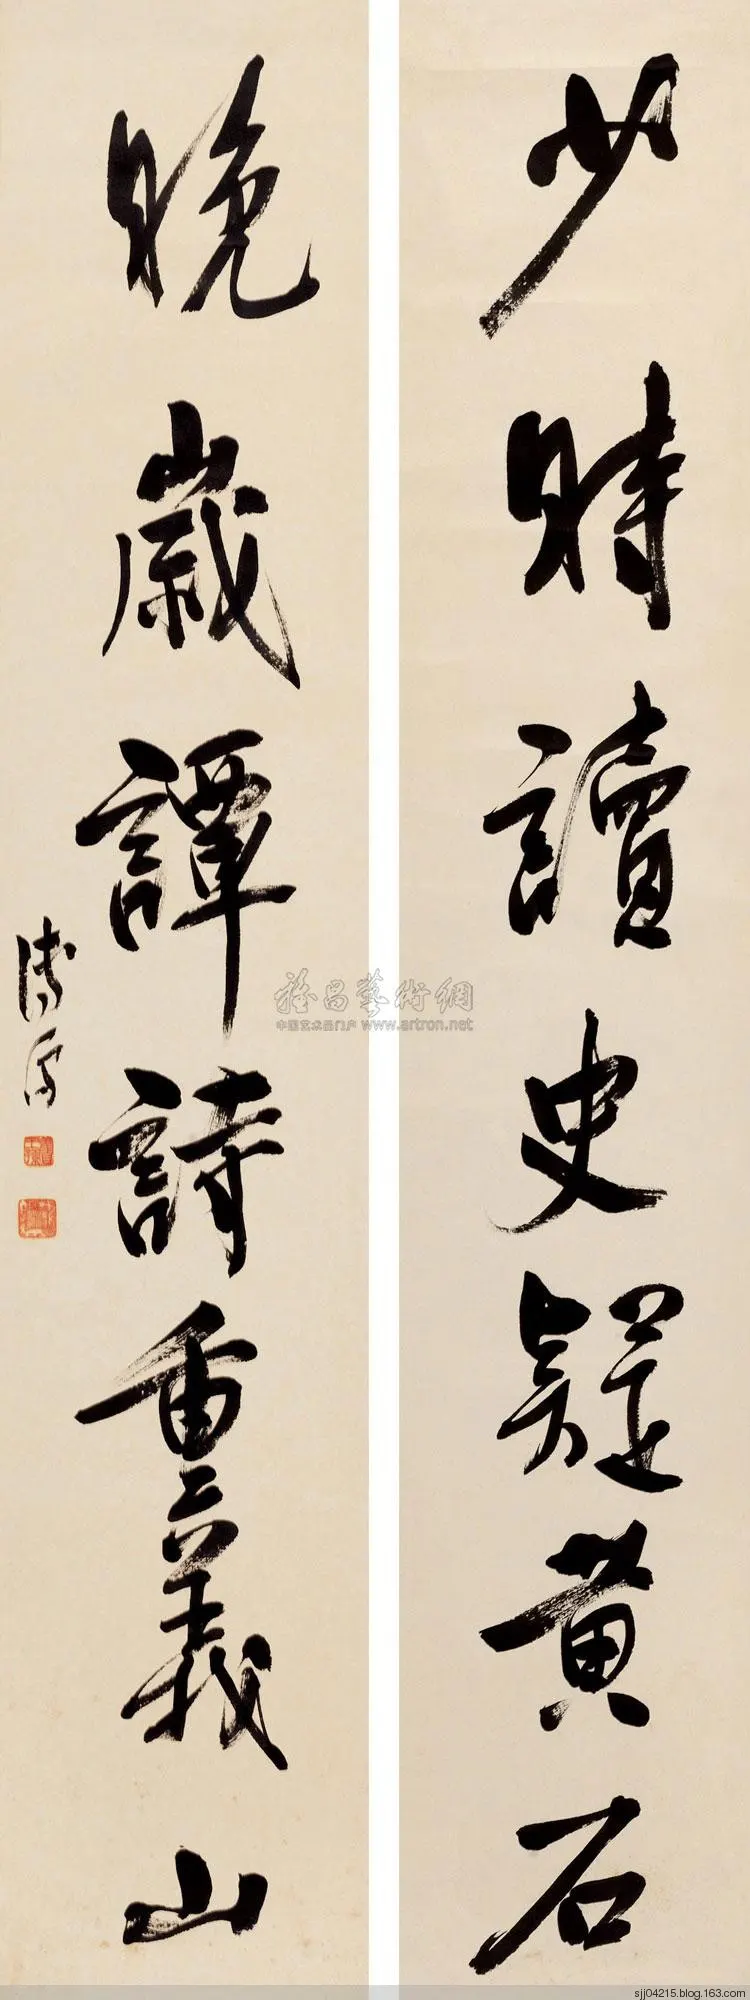 少時讀史疑黄石
晚歲譚詩重義山
溥儒
雅昌藝術網
中国艺术品门户 www.artron.net
sjj04215.blog.163.com